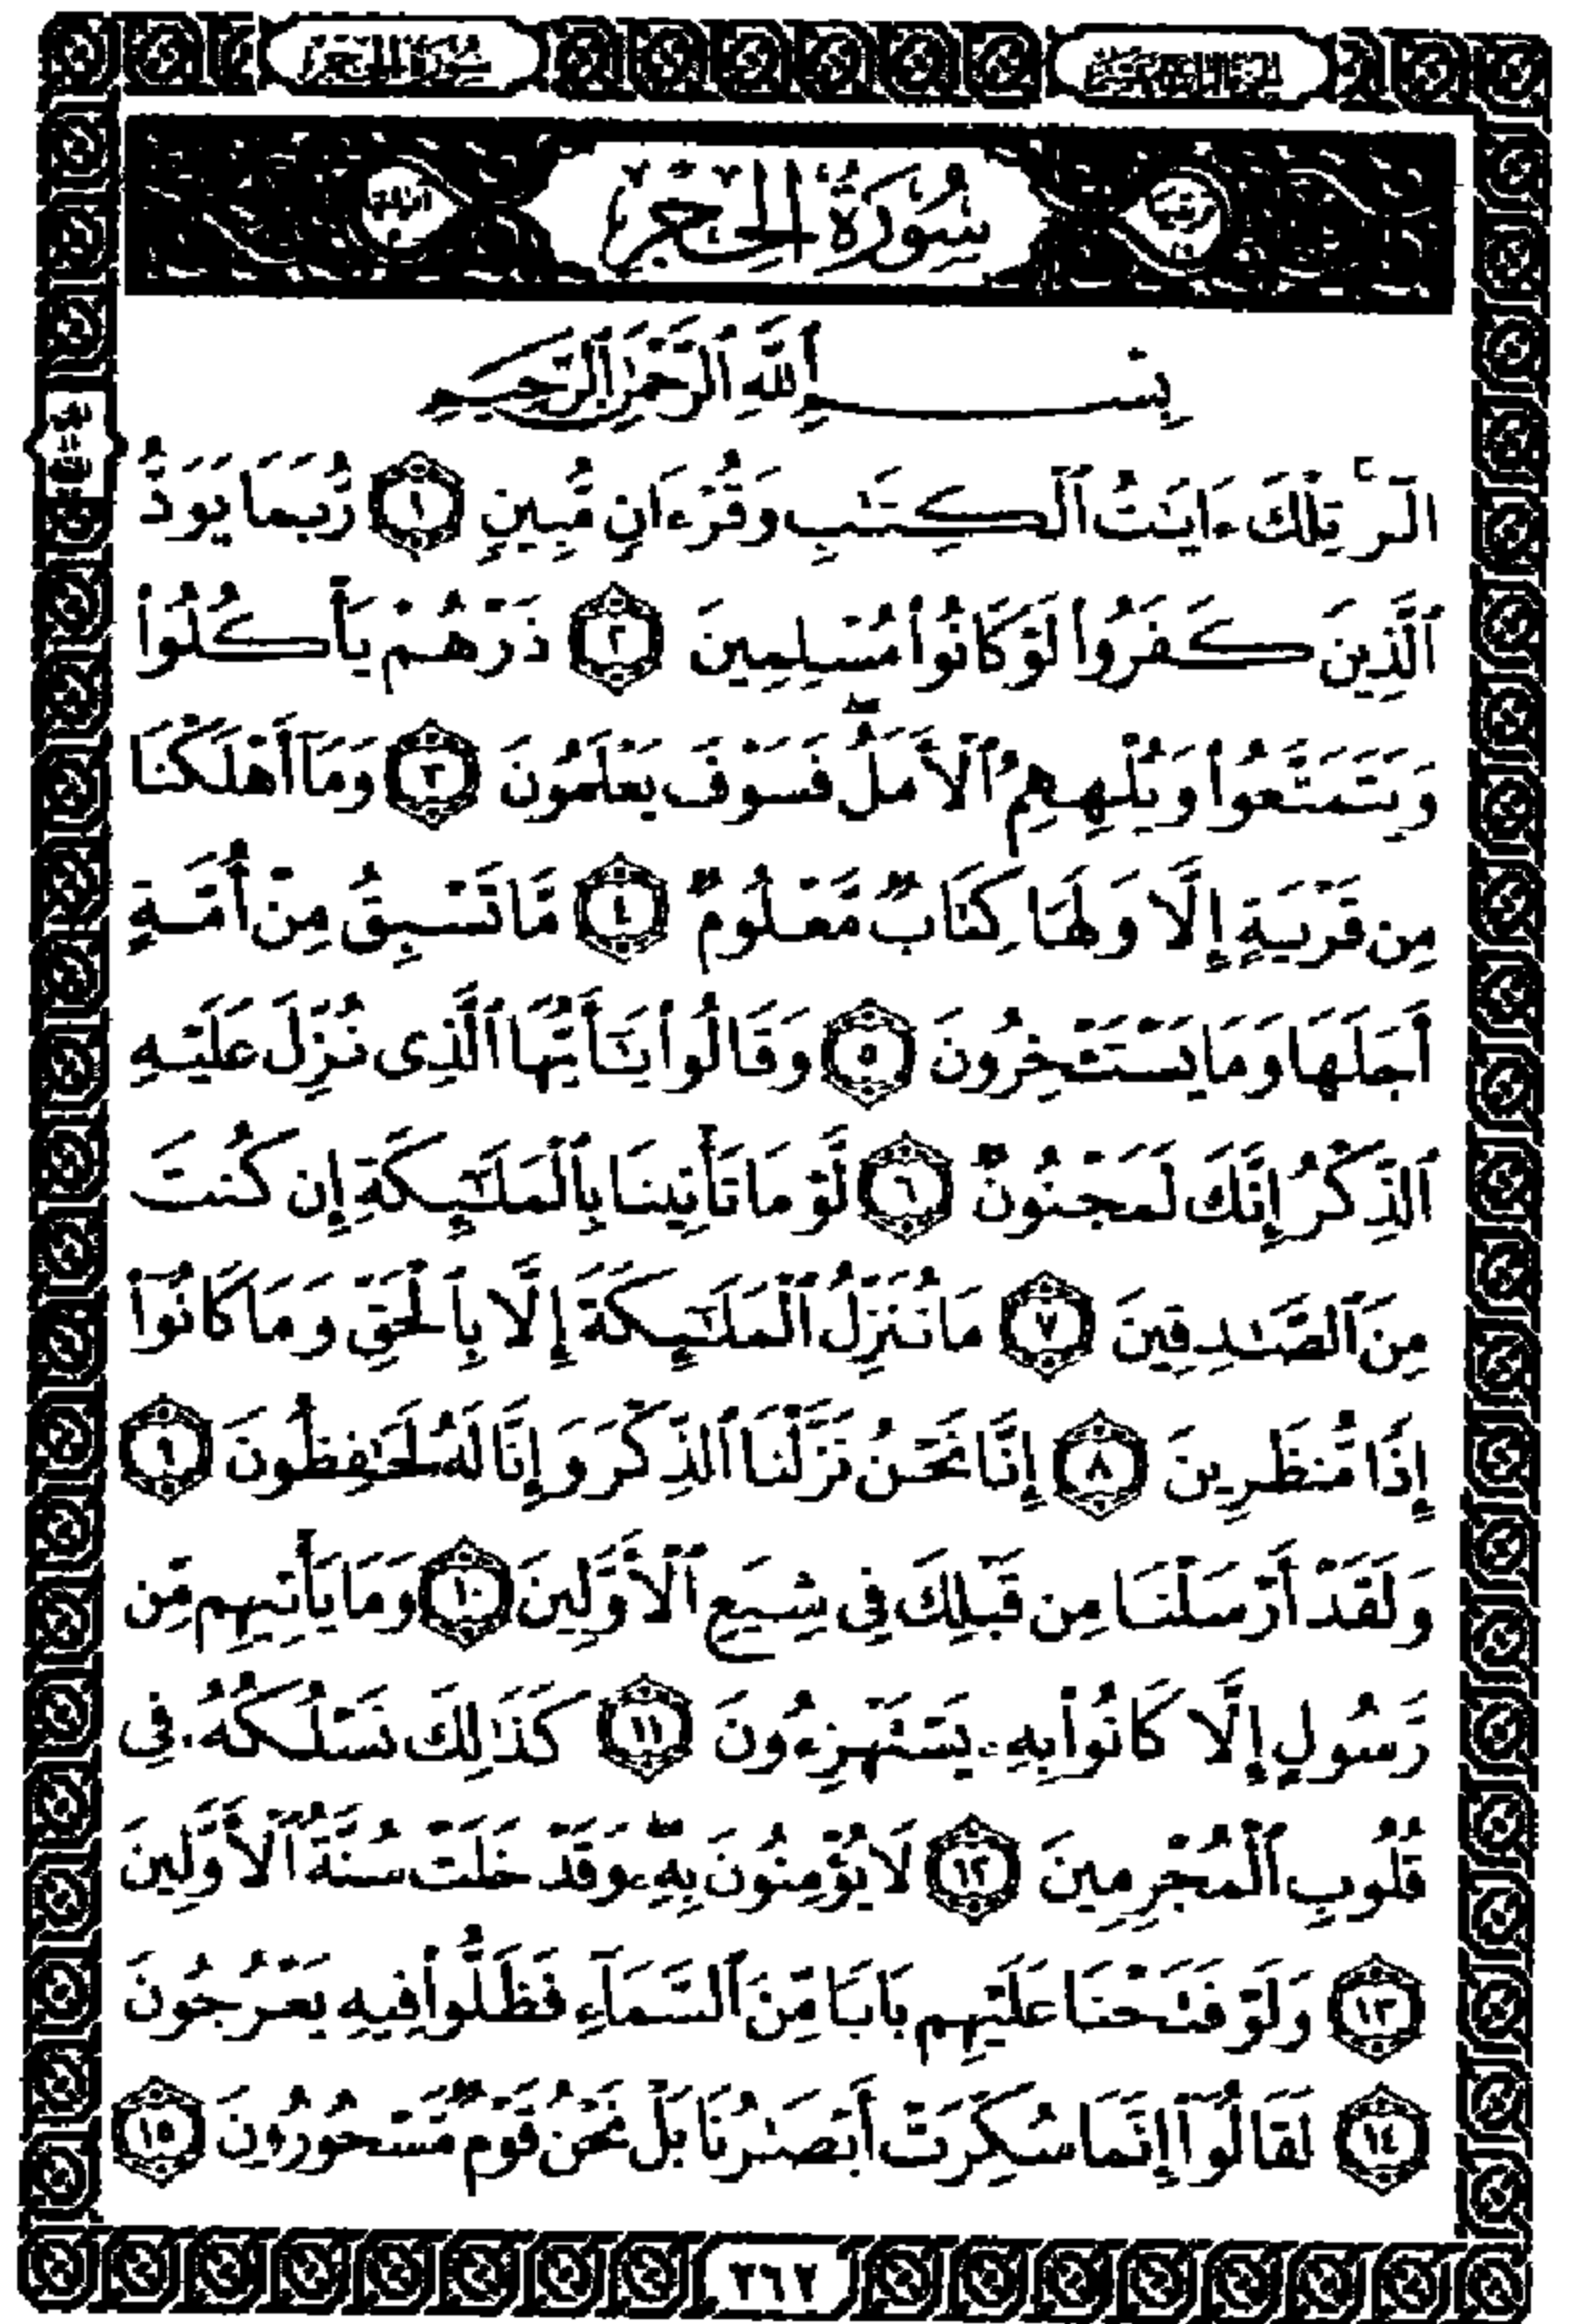 سُورَةُ الحِجْرِ
بِسْمِ ٱللَّهِ ٱلرَّحْمَٰنِ ٱلرَّحِيمِ
الٓرۚ تِلْكَ ءَايَٰتُ ٱلْكِتَٰبِ وَقُرْءَانٍ مُّبِينٍ ١ رُّبَمَا يَوَدُّ
ٱلَّذِينَ كَفَرُوا۟ لَوْ كَانُوا۟ مُسْلِمِينَ ٢ ذَرْهُمْ يَأْكُلُوا۟
وَيَتَمَتَّعُوا۟ وَيُلْهِهِمُ ٱلْأَمَلُ ۖ فَسَوْفَ يَعْلَمُونَ ٣ وَمَآ أَهْلَكْنَا
مِن قَرْيَةٍ إِلَّا وَلَهَا كِتَابٌ مَّعْلُومٌ ٤ مَّا تَسْبِقُ مِنْ أُمَّةٍ
أَجَلَهَا وَمَا يَسْتَـْٔخِرُونَ ٥ وَقَالُوا۟ يَٰٓأَيُّهَا ٱلَّذِى نُزِّلَ عَلَيْهِ
ٱلذِّكْرُ إِنَّكَ لَمَجْنُونٌ ٦ لَّوْ مَا تَأْتِينَا بِٱلْمَلَٰٓئِكَةِ إِن كُنتَ
مِنَ ٱلصَّٰدِقِينَ ٧ مَا نُنَزِّلُ ٱلْمَلَٰٓئِكَةَ إِلَّا بِٱلْحَقِّ وَمَا كَانُوٓا۟
إِذًا مُّنظَرِينَ ٨ إِنَّا نَحْنُ نَزَّلْنَا ٱلذِّكْرَ وَإِنَّا لَهُۥ لَحَٰفِظُونَ ٩
وَلَقَدْ أَرْسَلْنَا مِن قَبْلِكَ فِى شِيَعِ ٱلْأَوَّلِينَ ١٠ وَمَا يَأْتِيهِم مِّن
رَّسُولٍ إِلَّا كَانُوا۟ بِهِۦ يَسْتَهْزِءُونَ ١١ كَذَٰلِكَ نَسْلُكُهُۥ فِى
قُلُوبِ ٱلْمُجْرِمِينَ ١٢ لَا يُؤْمِنُونَ بِهِۦ ۖ وَقَدْ خَلَتْ سُنَّةُ ٱلْأَوَّلِينَ
١٣ وَلَوْ فَتَحْنَا عَلَيْهِم بَابًا مِّنَ ٱلسَّمَآءِ فَظَلُّوا۟ فِيهِ يَعْرُجُونَ
١٤ لَقَالُوٓا۟ إِنَّمَا سُكِّرَتْ أَبْصَٰرُنَا بَلْ نَحْنُ قَوْمٌ مَّسْحُورُونَ ١٥
٢٦٢